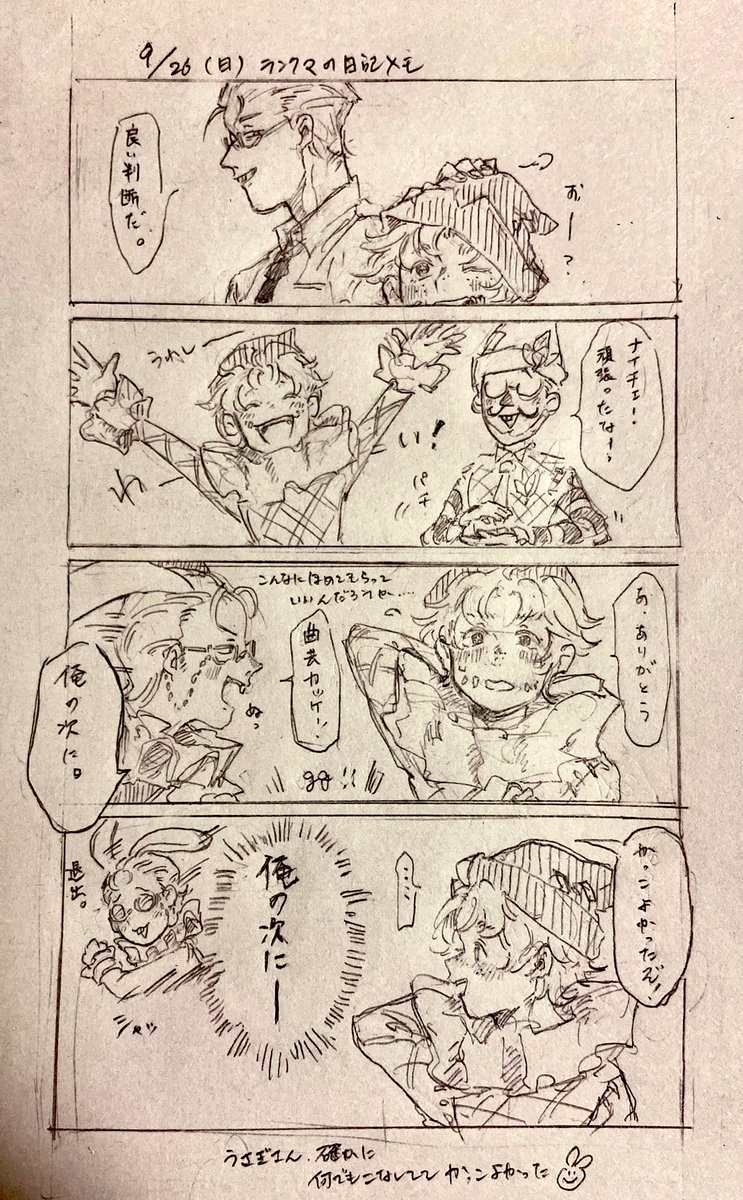 9/26(日) ランクマの日記メモ
おー?
良い判断だ。
ナイチェー。
頑張ったなー。
パチ
うれしー
わーい!
あ、ありがとう
こんなにほめてもらって
いいんだろうか……
曲芸カッケー!
gg!!
ぬっ
俺の次に。
かっこよかったぞ!
……
俺の次にー
退出。
うさぎさん、確かに
何でもこなしてて かっこよかった